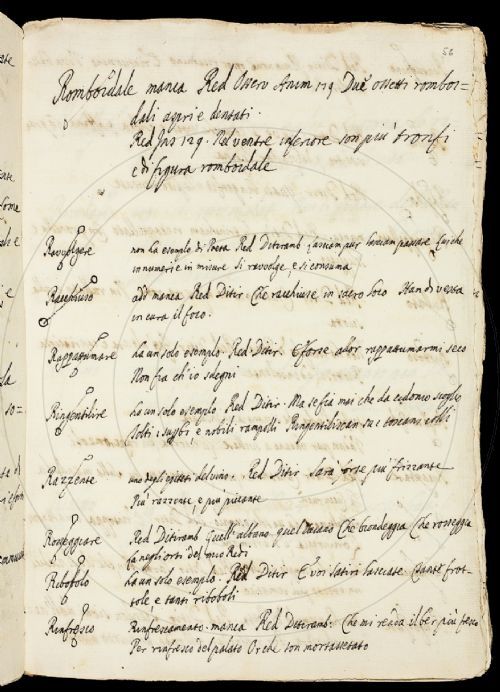 56
Romboidale manca Red Osserv Anim 119 Due ossetti romboi=
dali azuri e dentati.
Red Ins 129. Nel ventre inferiore son più tronfi
e di figura romboidale
Ravvolgere non ha esempio di Poeta Red Ditiramb. lasciam pur lasciam passare Lui che
in numeri e in misure si ravvolge, e si consuma
Racchiuso add manca Red Ditir. Che racchiuse in sacro loco Han di Vesta
in cura il foco.
Rappattumare ha un solo esempio Red Ditir. E forse allor rappattumarmi seco
Non fia ch'io sdegni
Ringentilire ha un solo esempio Red Ditir. Ma se fia mai che da cidonio scoglio
Tolti i superbi, e nobili rampolli Ringentiliscan su i toscani colli
Razzente uno degli epiteti del vino. Red Ditir Sarà forse più frizzante
Più razzente, e più piccante
Rosseggiare Red Ditiramb Quell' albano quel Vaiano Che biondeggia Che rosseggia
Là negli orti del mio Redi
Ribobolo ha un solo esempio. Red Ditir E voi satiri lasciate Tante frot-
tole, e tanti riboboli
Rinfresco Rinfrescamento. manca Red Ditiramb. Che mi renda il ber più fresco
Per rinfresco del palato Or che son mortassetato